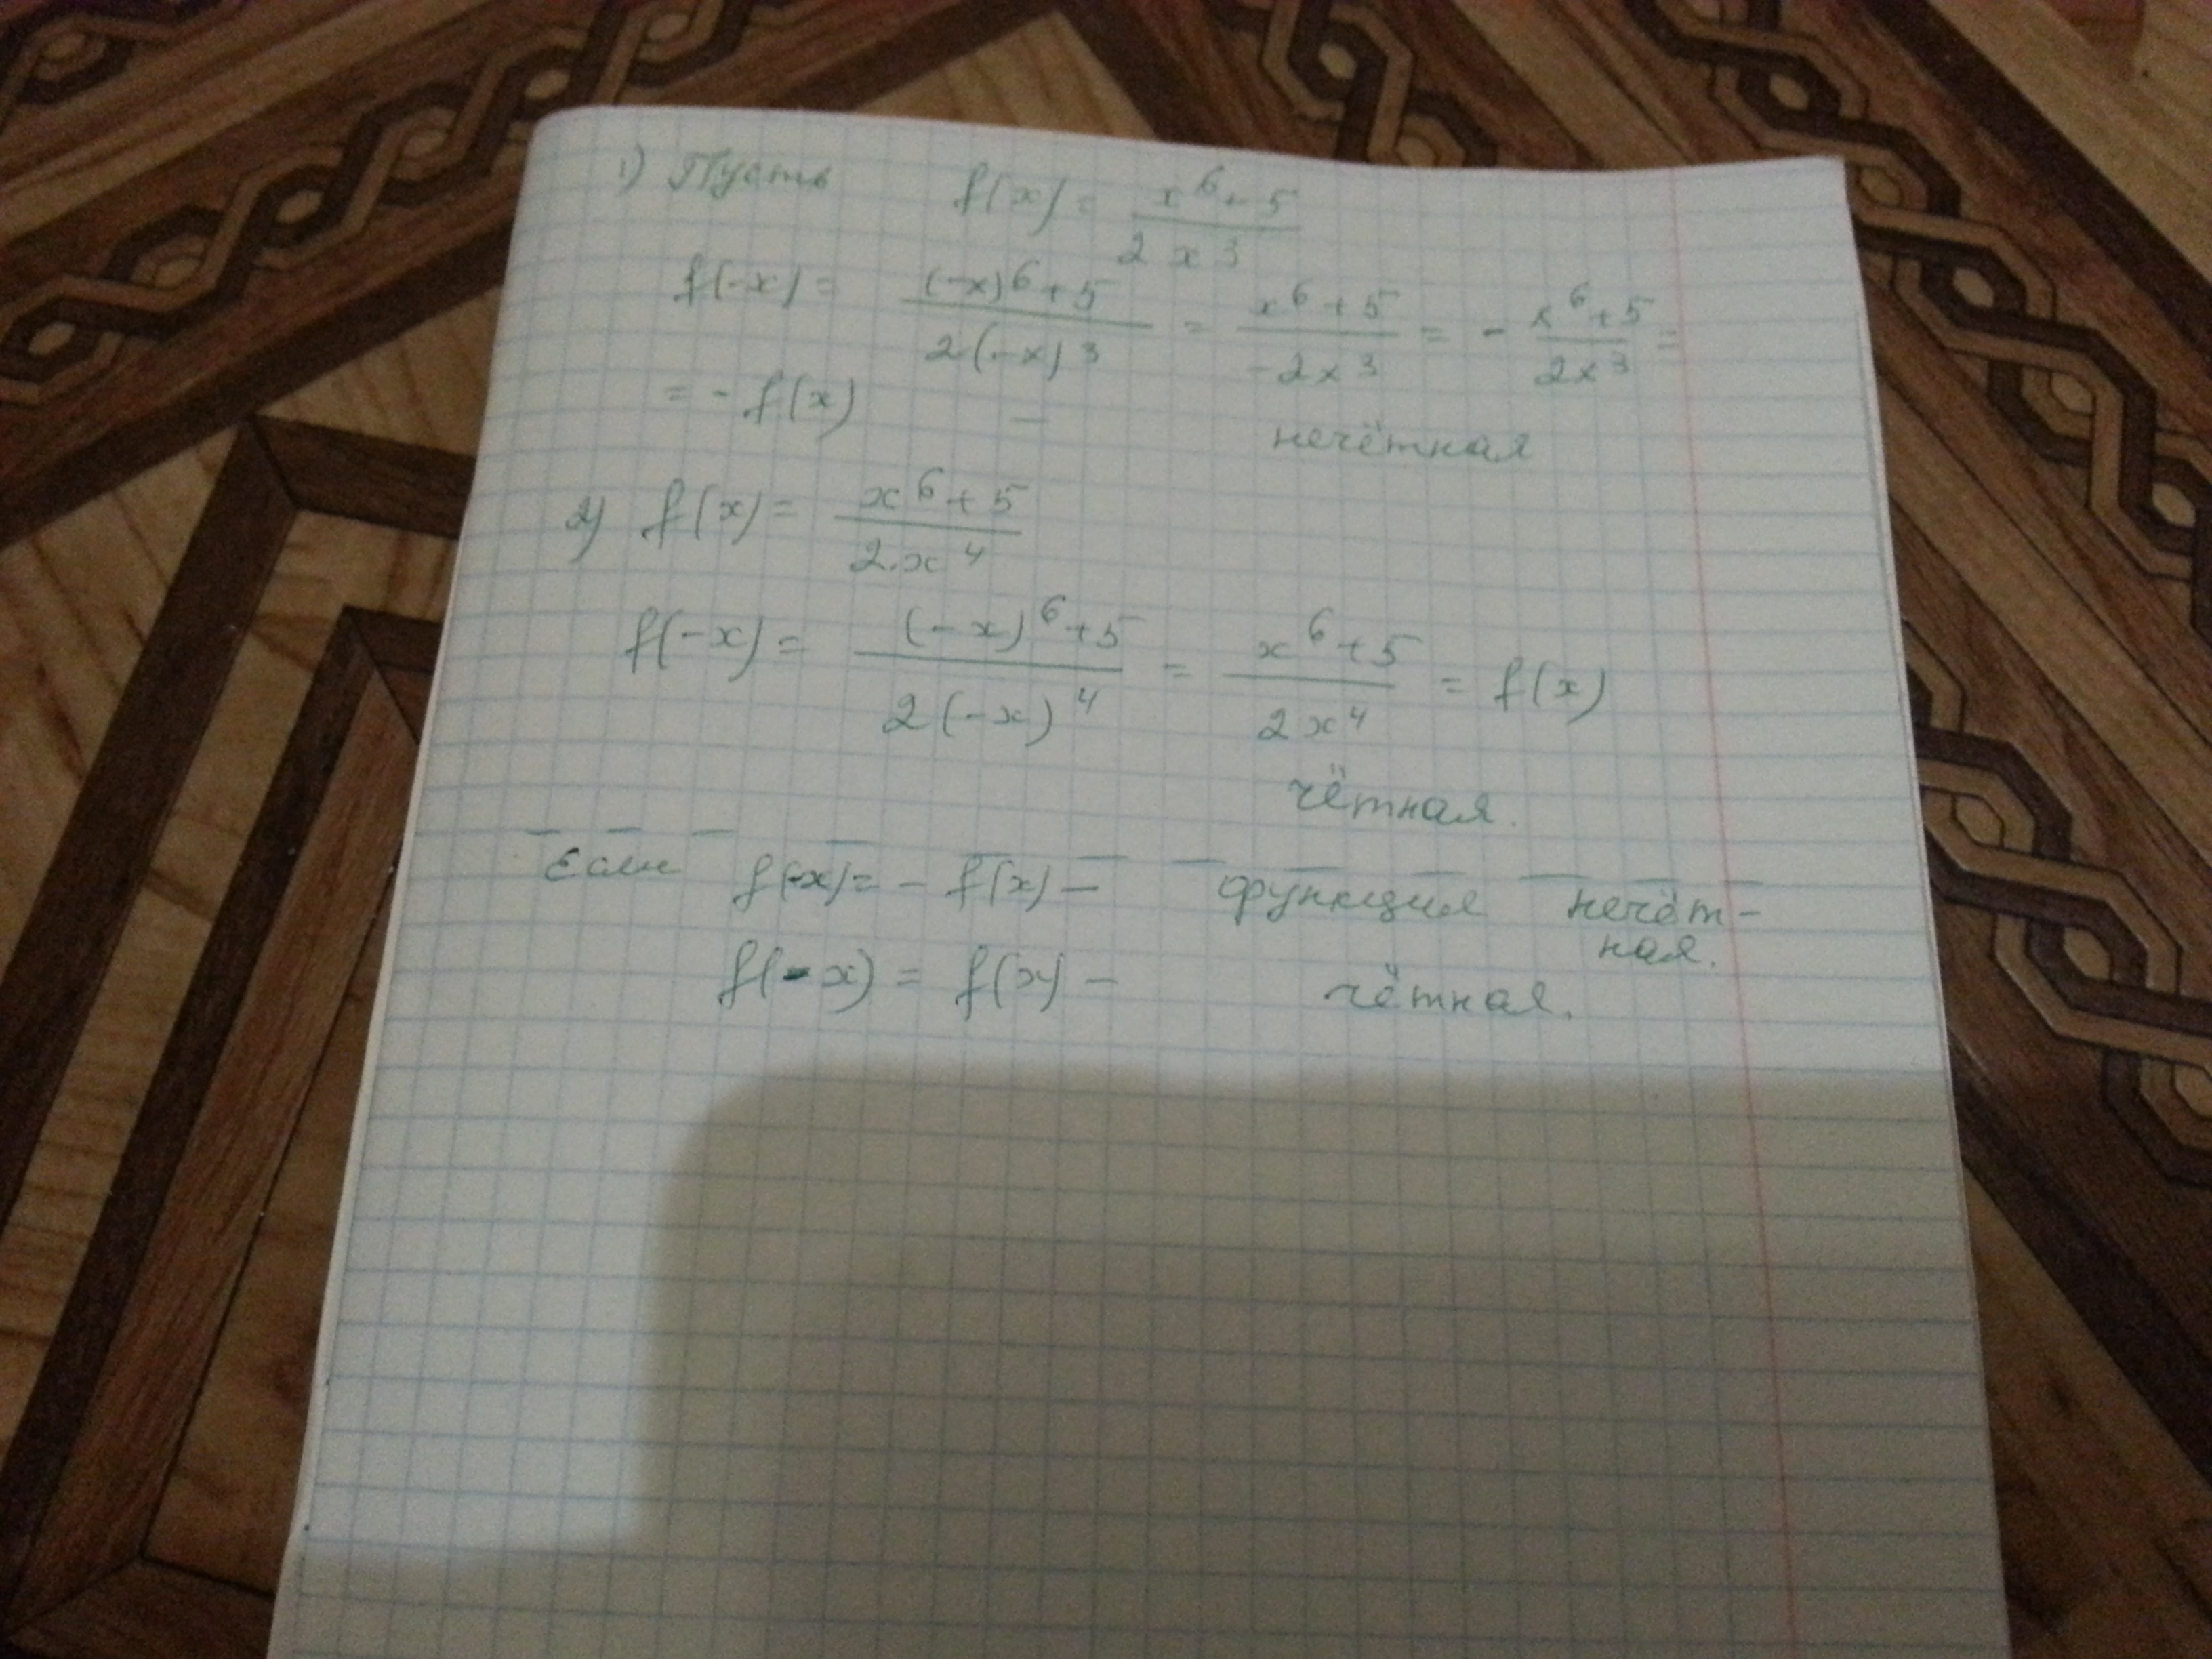 1) Пусть f(x) = (x⁶+5)/(2x³)
f(-x) = ((-x)⁶+5)/(2(-x)³) = (x⁶+5)/(-2x³) = - (x⁶+5)/(2x³) =
= - f(x) — нечётная
2) f(x) = (x⁶+5)/(2·x⁴)
f(-x) = ((-x)⁶+5)/(2(-x)⁴) = (x⁶+5)/(2x⁴) = f(x)
чётная.
Если f(-x) = - f(x) — функция нечёт-
ная.
f(-x) = f(x) — чётная.